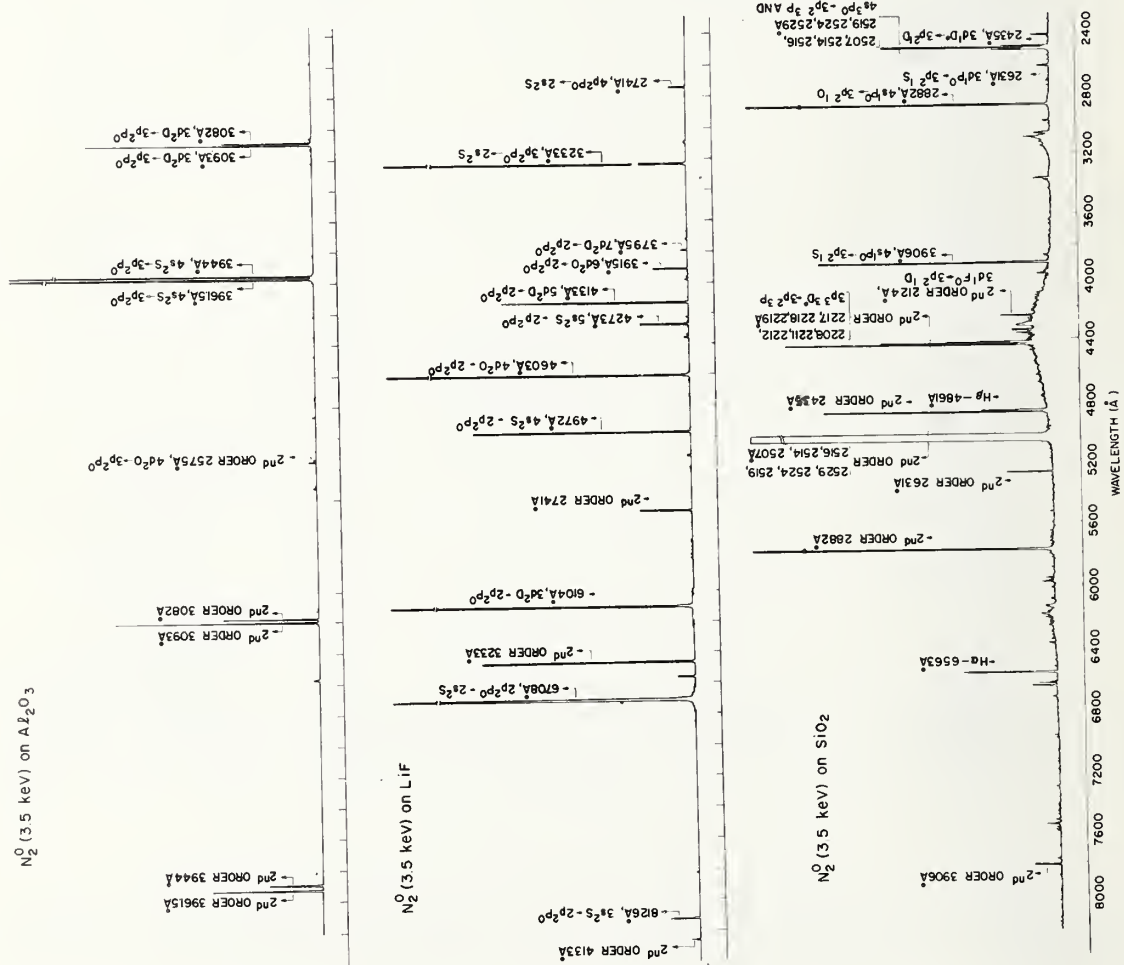 N₂⁰ (3.5 keV) on Aℓ₂O₃
2nd ORDER 3961.5Å
2nd ORDER 3944Å
2nd ORDER 3093Å
2nd ORDER 3082Å
2nd ORDER 2575Å, 4d²D→3p²P⁰
3961.5Å, 4s²S→3p²P⁰
3944Å, 4s²S→3p²P⁰
3093Å, 3d²D→3p²P⁰
3082Å, 3d²D→3p²P⁰
N₂⁰ (3.5 keV) on LiF
2nd ORDER 4133Å
8126Å, 3s²S→2p²P⁰
6708Å, 2p²P⁰→2s²S
2nd ORDER 3233Å
6104Å, 3d²D→2p²P⁰
2nd ORDER 2741Å
4972Å, 4s²S→2p²P⁰
4603Å, 4d²D→2p²P⁰
4273Å, 5s²S→2p²P⁰
4133Å, 5d²D→2p²P⁰
3915Å, 6d²D→2p²P⁰
3795Å, 7d²D→2p²P⁰
3233Å, 3p²P⁰→2s²S
2741Å, 4p²P⁰→2s²S
N₂⁰ (3.5 keV) on SiO₂
2nd ORDER 3906Å
Hα-6563Å
2nd ORDER 2882Å
2nd ORDER 2631Å
2nd ORDER
2529, 2524, 2519,
2516, 2514, 2507Å
Hβ-4861Å
2nd ORDER 2435Å
2nd ORDER
2208, 2211, 2212,
2217, 2218, 2219Å
3p³ ³D⁰→3p² ³P
2nd ORDER 2124Å,
3d¹F⁰→3p² ¹D
3906Å, 4s¹P⁰→3p² ¹S
2882Å, 4s¹P⁰→3p² ¹D
2631Å, 3d¹P⁰→3p² ¹S
2507, 2514, 2516,
2519, 2524, 2529Å
4s³P⁰→3p² ³P AND
2435Å, 3d¹D⁰→3p²¹D
8000 7600 7200 6800 6400 6000 5600 5200 4800 4400 4000 3600 3200 2800 2400
WAVELENGTH (Å)